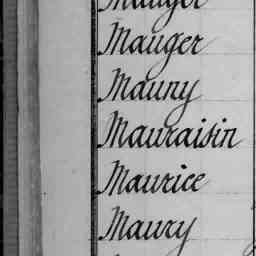 Mauger
Mauger
Mauny
Mauraisin
Maurice
Maury